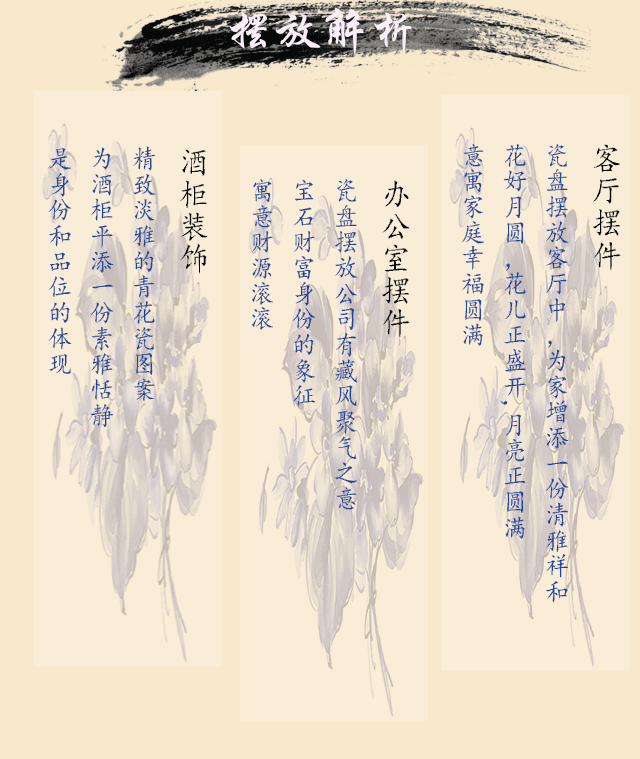 摆放解析
客厅摆件
瓷盘摆放客厅中，为家增添一份清雅祥和
花好月圆，花儿正盛开，月亮正圆满
意寓家庭幸福圆满
办公室摆件
瓷盘摆放公司有藏风聚气之意
宝石财富身份的象征
寓意财源滚滚
酒柜装饰
精致淡雅的青花瓷图案
为酒柜平添一份素雅恬静
是身份和品位的体现